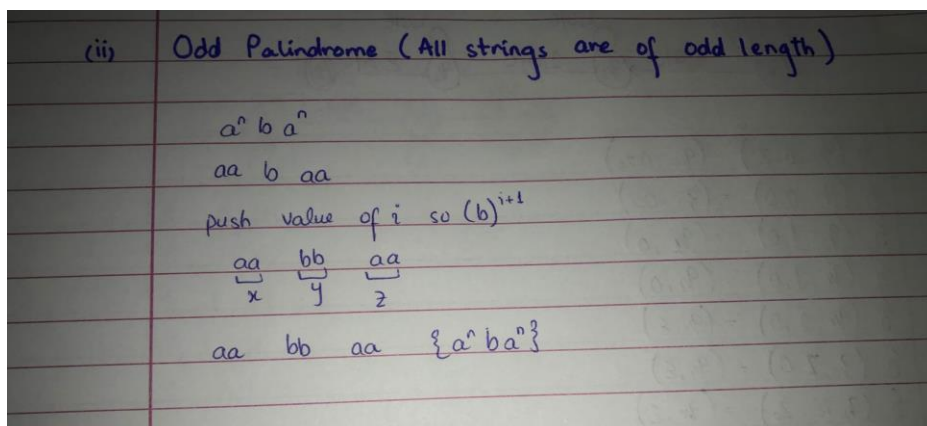 (ii) Odd Palindrome (All strings are of odd length)
aⁿ b aⁿ
aa b aa
push value of i so (b)ⁱ⁺¹
aa bb aa
x y z
aa bb aa {aⁿ b aⁿ}